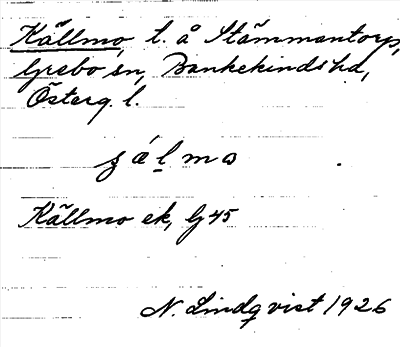 Källmo, l. å Stämmantorp,
Grebo sn, Bankekinds hd,
Österg. l.
ʂ æ l̠ m ɷ
Källmo ek, Gj 45
N. Lindqvist 1926